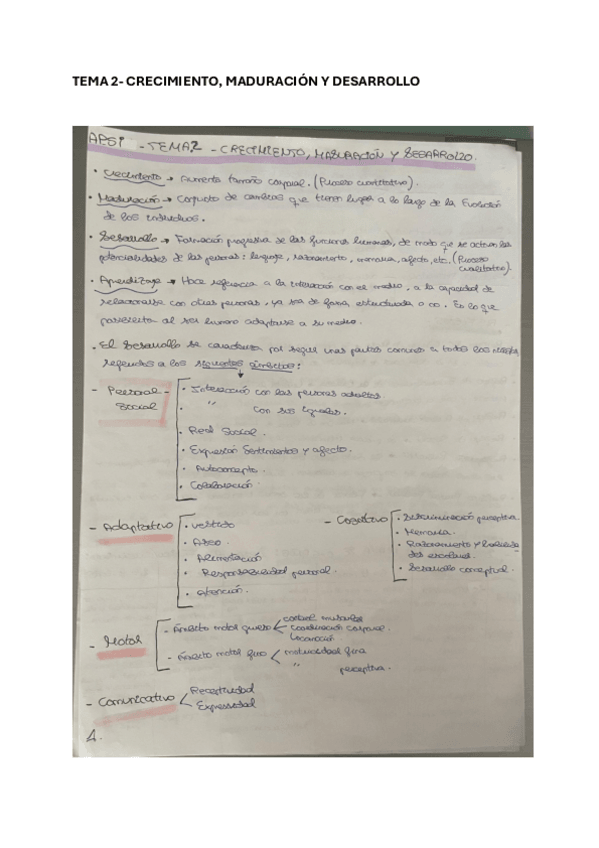 TEMA 2- CRECIMIENTO, MADURACIÓN Y DESARROLLO
APSI - TEMA 2 - CRECIMIENTO, MADURACIÓN Y DESARROLLO.
• Crecimiento → Aumento tamaño corporal. (Proceso cuantitativo).
• Maduración → Conjunto de cambios que tienen lugar a lo largo de la Evolución
de los individuos.
• Desarrollo → Formación progresiva de las funciones humanas, de modo que se activan las
potencialidades de las personas: lenguaje, razonamiento, memoria, afecto, etc. (Proceso
cualitativo).
• Aprendizaje → Hace referencia a la interacción con el medio, a la capacidad de
relacionarse con otras personas, ya sea de forma estructurada o no. Es lo que
al ser humano adaptarse a su medio.
• El Desarrollo se caracteriza por seguir unas pautas comunes a todos los
referidos a los siguientes ámbitos:
- Personal - Social
• Interacción con las personas adultas
• " con sus iguales.
• Red Social.
• Expresión Sentimientos y afecto.
• Autoconcepto.
• Colaboración.
- Adaptativo
• vestido
• Aseo.
• Alimentación
• Responsabilidad personal.
• atención.
- Cognitivo
• Discriminación perceptiva
• Memoria.
• Razonamiento y
escolares.
• Desarrollo conceptual.
- Motor
- Ámbito motor grueso
control muscular
coordinación corporal.
Locomoción
- Ámbito motor fino
motricidad fina
" perceptiva.
- Comunicativo
Receptividad
Expresividad
1.